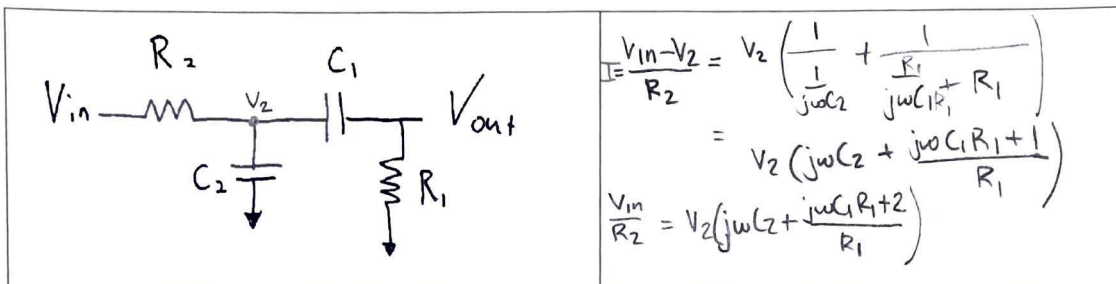 R₂
C₁
Vin
V₂
Vout
C₂
R₁
I = (Vin-V₂)/R₂ = V₂ (1/(1/(jωC₂)) + 1/(R₁/(jωC₁R₁) + R₁))
= V₂ (jωC₂ + (jωC₁R₁+1)/R₁)
Vin/R₂ = V₂(jωC₂ + (jωC₁R₁+2)/R₁)